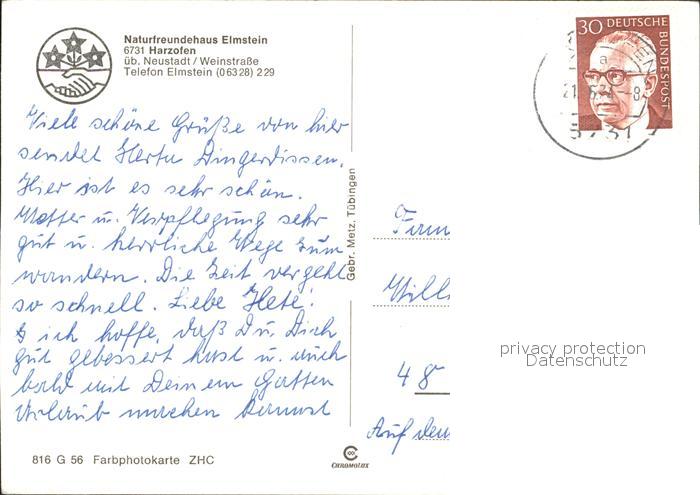 Naturfreundehaus Elmstein
6731 Harzofen
üb. Neustadt / Weinstraße
Telefon Elmstein (06328) 229
30 DEUTSCHE BUNDESPOST
21. 8
Viele schöne Grüße von hier
sendet Herta Dingerdissen.
Hier ist es sehr schön.
Wetter u. Verpflegung sehr
gut u. herrliche Wege zum
wandern. Die Zeit vergeht
so schnell. Liebe Hete!
ich hoffe, daß Du Dich
gut gebessert hast u. auch
bald mit Deinem Gatten
Urlaub machen kannst
Gebr. Metz, Tübingen
Firm
Will
48
Auf dem
privacy protection
Datenschutz
816 G 56 Farbphotokarte ZHC
CHROMOLUX